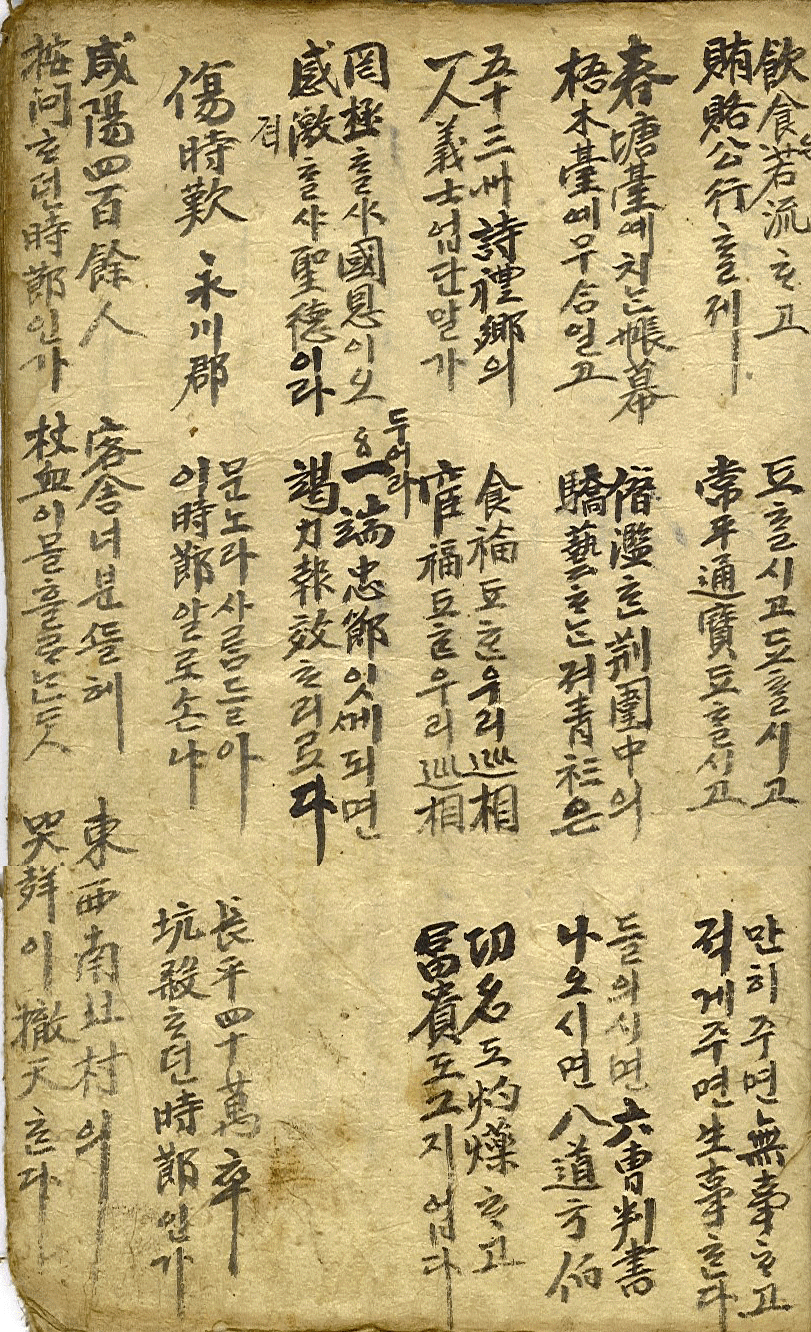 飮食若流ᄒᆞ고
賄賂公行ᄒᆞᆯ제
됴ᄒᆞᆯ시고됴ᄒᆞᆯ시고
常平通寶됴ᄒᆞᆯ시고
만히주면無事ᄒᆞ고
적게주면生事ᄒᆞᆫ다
春塘臺예치ᄂᆞᆫ帳幕
梧木臺예무合일고
僭濫ᄒᆞᆫ荊圍中의
驕藝ᄒᆞᄂᆞᆫ져靑衫은
들의시면六曹判書
나오시면八道方伯
五十三州詩禮鄕의
一人義士업단말가
食福됴ᄒᆞᆫ우리巡相
宦福됴ᄒᆞᆫ우리巡相
功名도灼爍ᄒᆞ고
冨貴도그지업다
두어라
罔極ᄒᆞᆯ사國恩이오
感激ᄒᆞᆯ샤聖德이라
격
一端忠節잇게되면
竭力報效ᄒᆞ리로다
傷時歎 永川郡
문노라사ᄅᆞᆷ들아
이時節알로손냐
長平四十萬卒
坑殺ᄒᆞ던時節인가
咸陽四百餘人
按問ᄒᆞ던時節인가
客舍너분ᄯᅳᆯ헤
杖血이믈흘ᄅᆞᄂᆞᆫᄃᆞᆺ
東西南北村의
哭聲이撤天ᄒᆞᆫ다